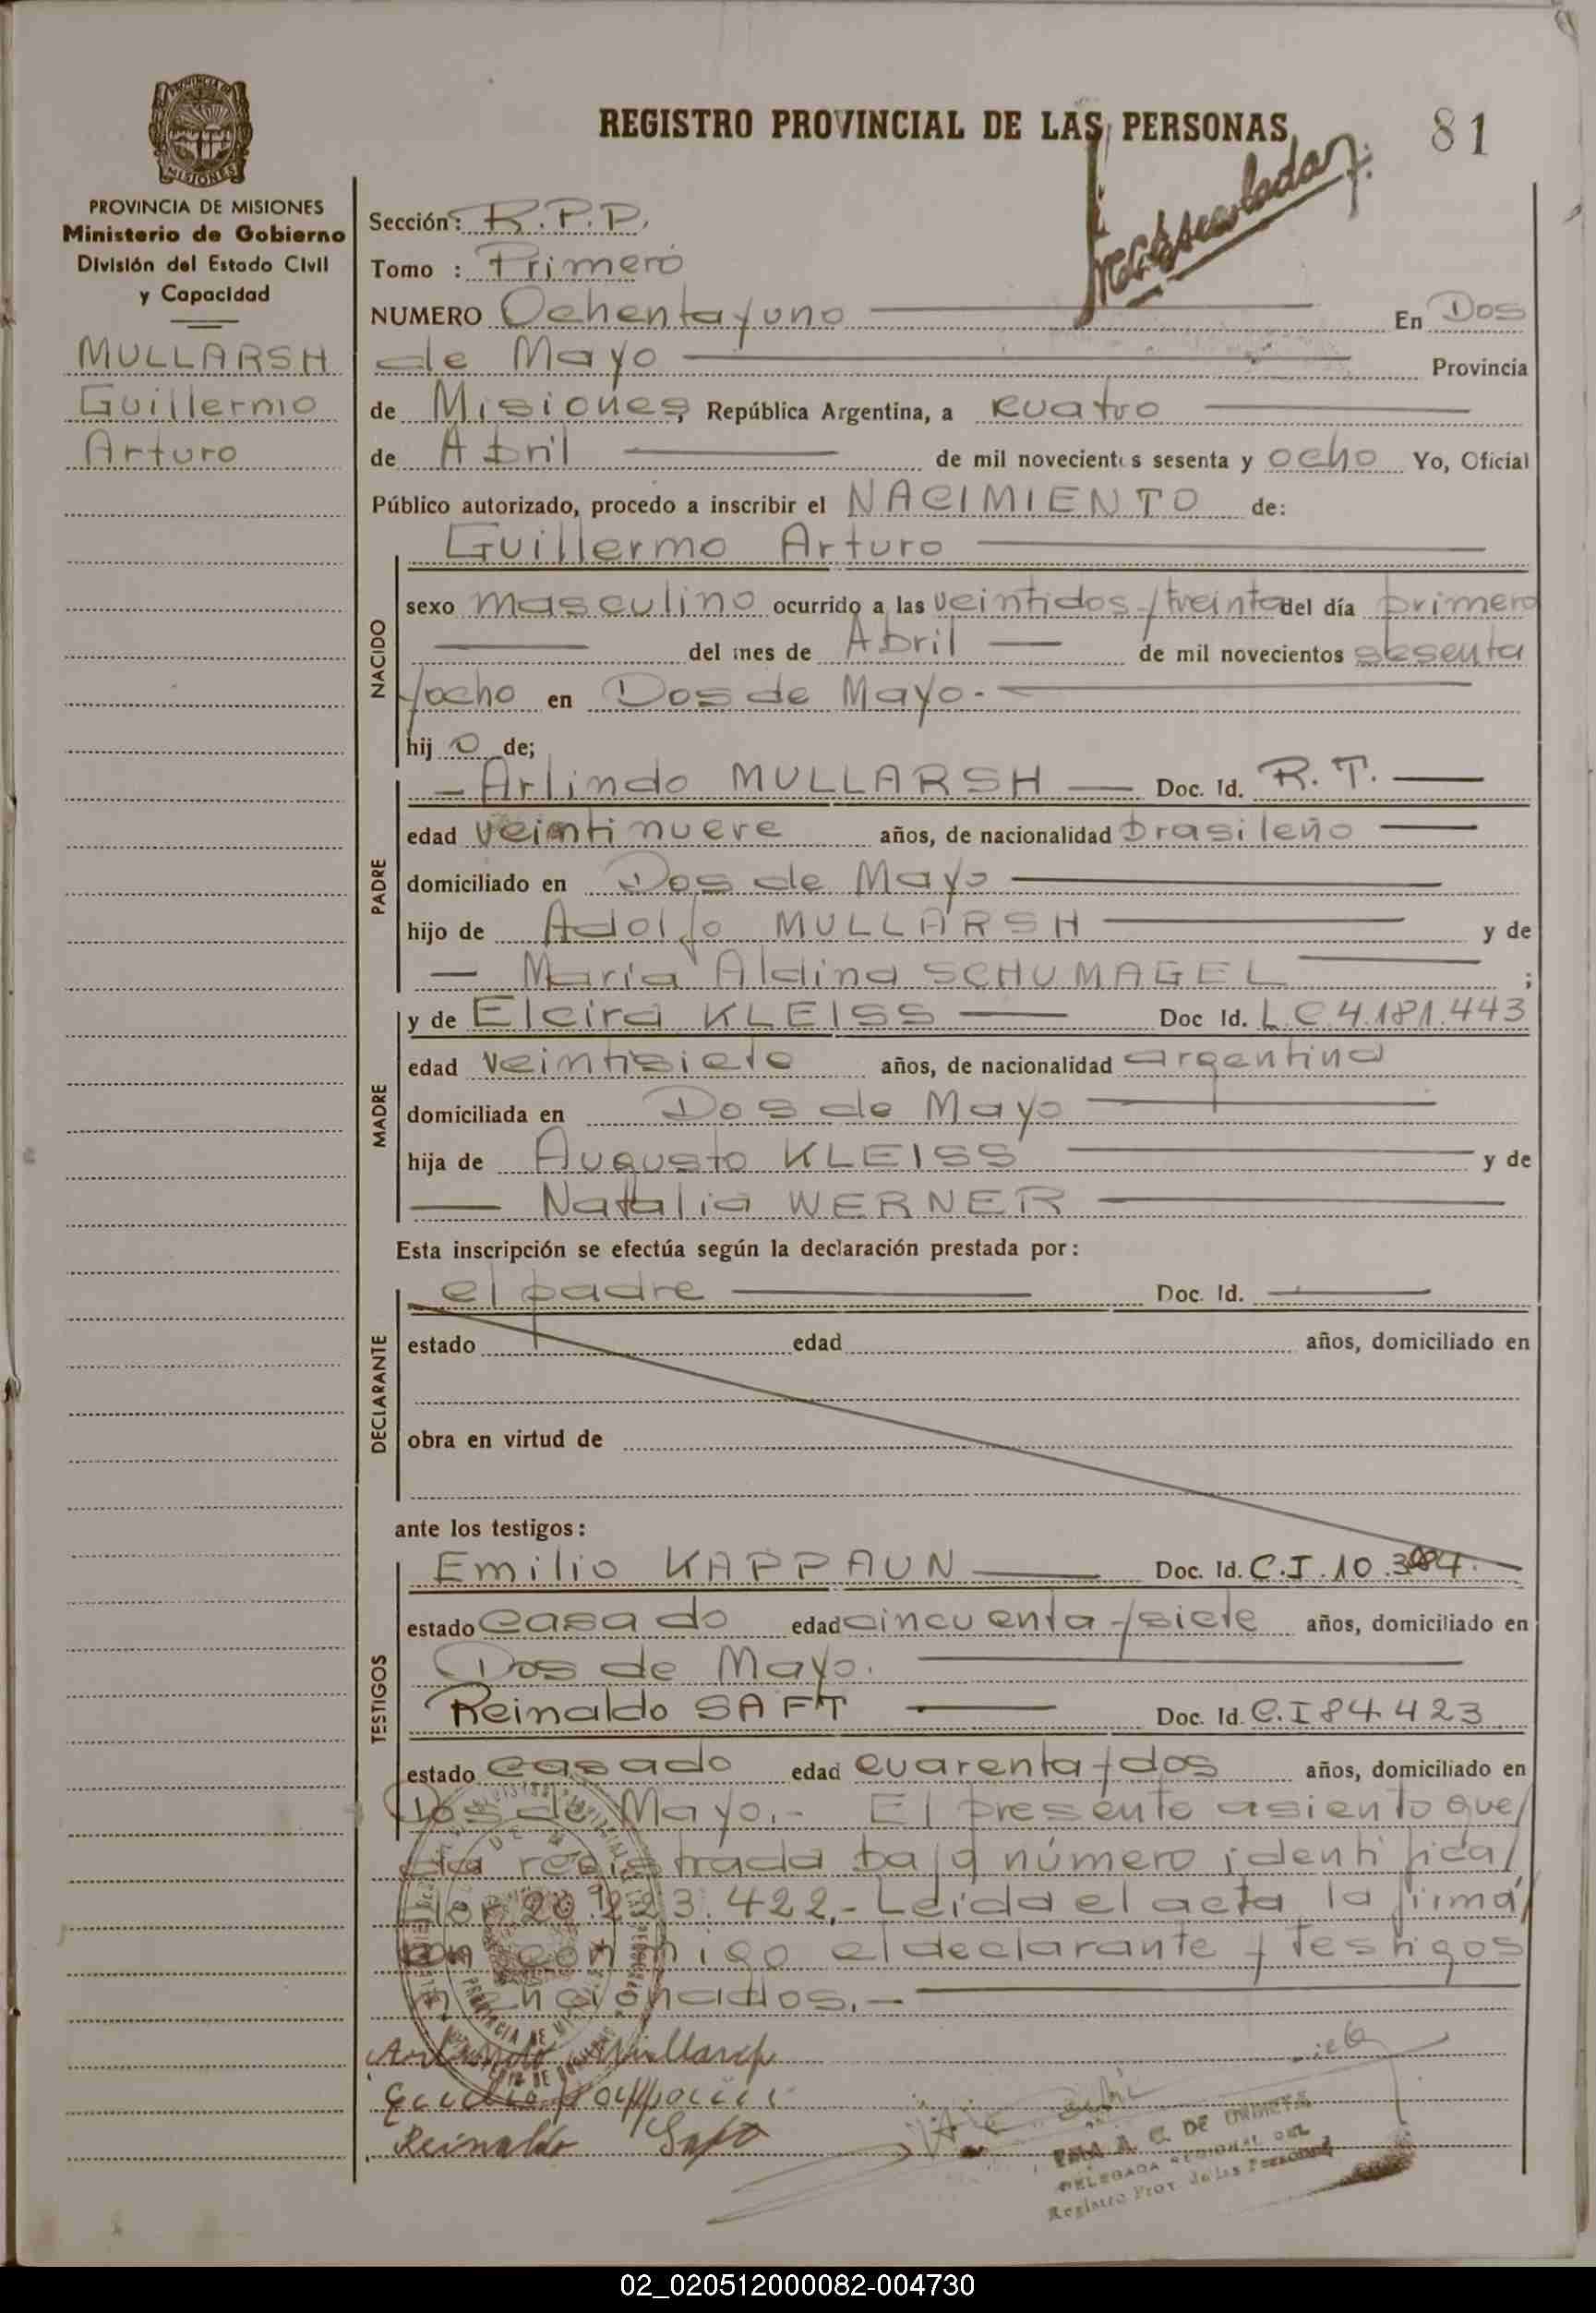 REGISTRO PROVINCIAL DE LAS PERSONAS
81
PROVINCIA DE MISIONES
Ministerio de Gobierno
División del Estado Civil
y Capacidad
MULLARSH
Guillermo
Arturo
Sección: R.P.P.
Tomo : Primero
NUMERO Ochenta y uno En Dos
de Mayo Provincia
de Misiones, República Argentina, a cuatro
de Abril de mil novecientos sesenta y ocho Yo, Oficial
Público autorizado, procedo a inscribir el NACIMIENTO de:
Guillermo Arturo
NACIDO
sexo masculino ocurrido a las veintidos y treinta del día primero
del mes de Abril de mil novecientos sesenta
y ocho en Dos de Mayo.-
hij o de;
PADRE
- Arlindo MULLARSH Doc. Id. R. T.
edad veintinueve años, de nacionalidad brasileño
domiciliado en Dos de Mayo
hijo de Adolfo MULLARSH y de
María Aldina SCHUMAGEL ;
MADRE
y de Elcira KLEISS Doc Id. L.C.4.181.443
edad veintisiete años, de nacionalidad argentina
domiciliada en Dos de Mayo
hija de Augusto KLEISS y de
Natalia WERNER
Esta inscripción se efectúa según la declaración prestada por:
DECLARANTE
el padre Doc. Id.
estado edad años, domiciliado en
obra en virtud de
ante los testigos:
TESTIGOS
Emilio KAPPAUN Doc. Id. C.I.
estado casado edad cincuenta y siete años, domiciliado en
Dos de Mayo.
Reinaldo SAFT Doc. Id. C.I 84.423
estado casado edad cuarenta y dos años, domiciliado en
Dos de Mayo.- El presente asiento que/
da registrada bajo número identifica/
dor 20.223.422.- Leida el acta la firma/
con migo el declarante y testigos
mencionados.-
Reinaldo Saft
DELEGADA REGIONAL DEL
Registro Prov. de las Personas
02_020512000082-004730